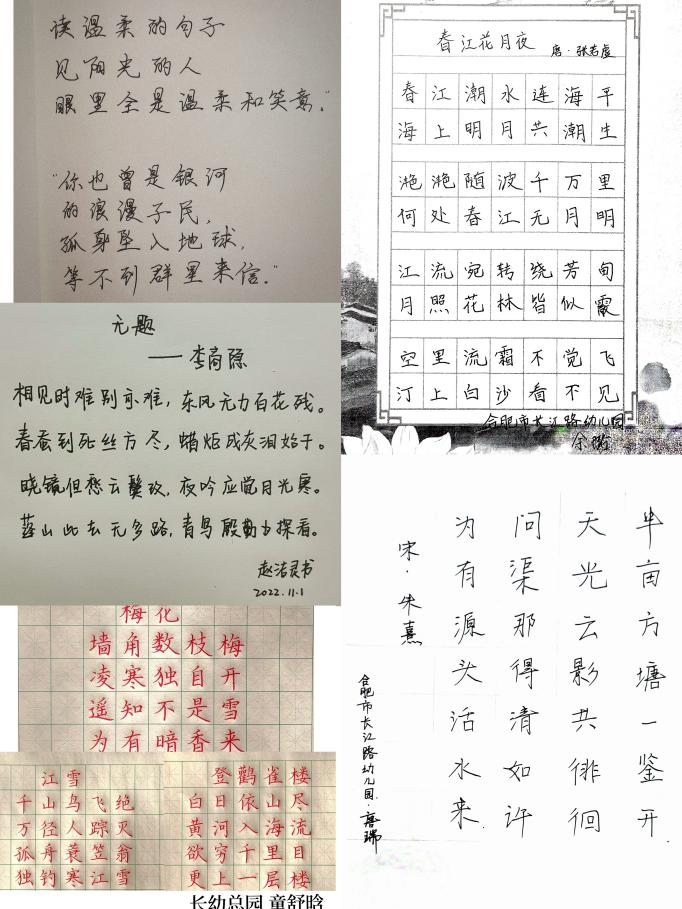 读温柔的句子
见阳光的人
眼里全是温柔和笑意."
"你也曾是银河
的浪漫子民,
孤身坠入地球,
等不到群星来信."
无题
——李商隐
相见时难别亦难,东风无力百花残。
春蚕到死丝方尽,蜡炬成灰泪始干。
晓镜但愁云鬓改,夜吟应觉月光寒。
蓬山此去无多路,青鸟殷勤为探看。
赵洁灵书
2022.11.1
梅花
墙角数枝梅
凌寒独自开
遥知不是雪
为有暗香来
江雪
千山鸟飞绝
万径人踪灭
孤舟蓑笠翁
独钓寒江雪
登鹳雀楼
白日依山尽
黄河入海流
欲穷千里目
更上一层楼
长幼总园 童舒晗
春江花月夜 唐·张若虚
春江潮水连海平
海上明月共潮生
滟滟随波千万里
何处春江无月明
江流宛转绕芳甸
月照花林皆似霰
空里流霜不觉飞
汀上白沙看不见
合肥市长江路幼儿园
半亩方塘一鉴开
天光云影共徘徊
问渠那得清如许
为有源头活水来.
宋·朱熹
合肥市长江路幼儿园·唐瑞